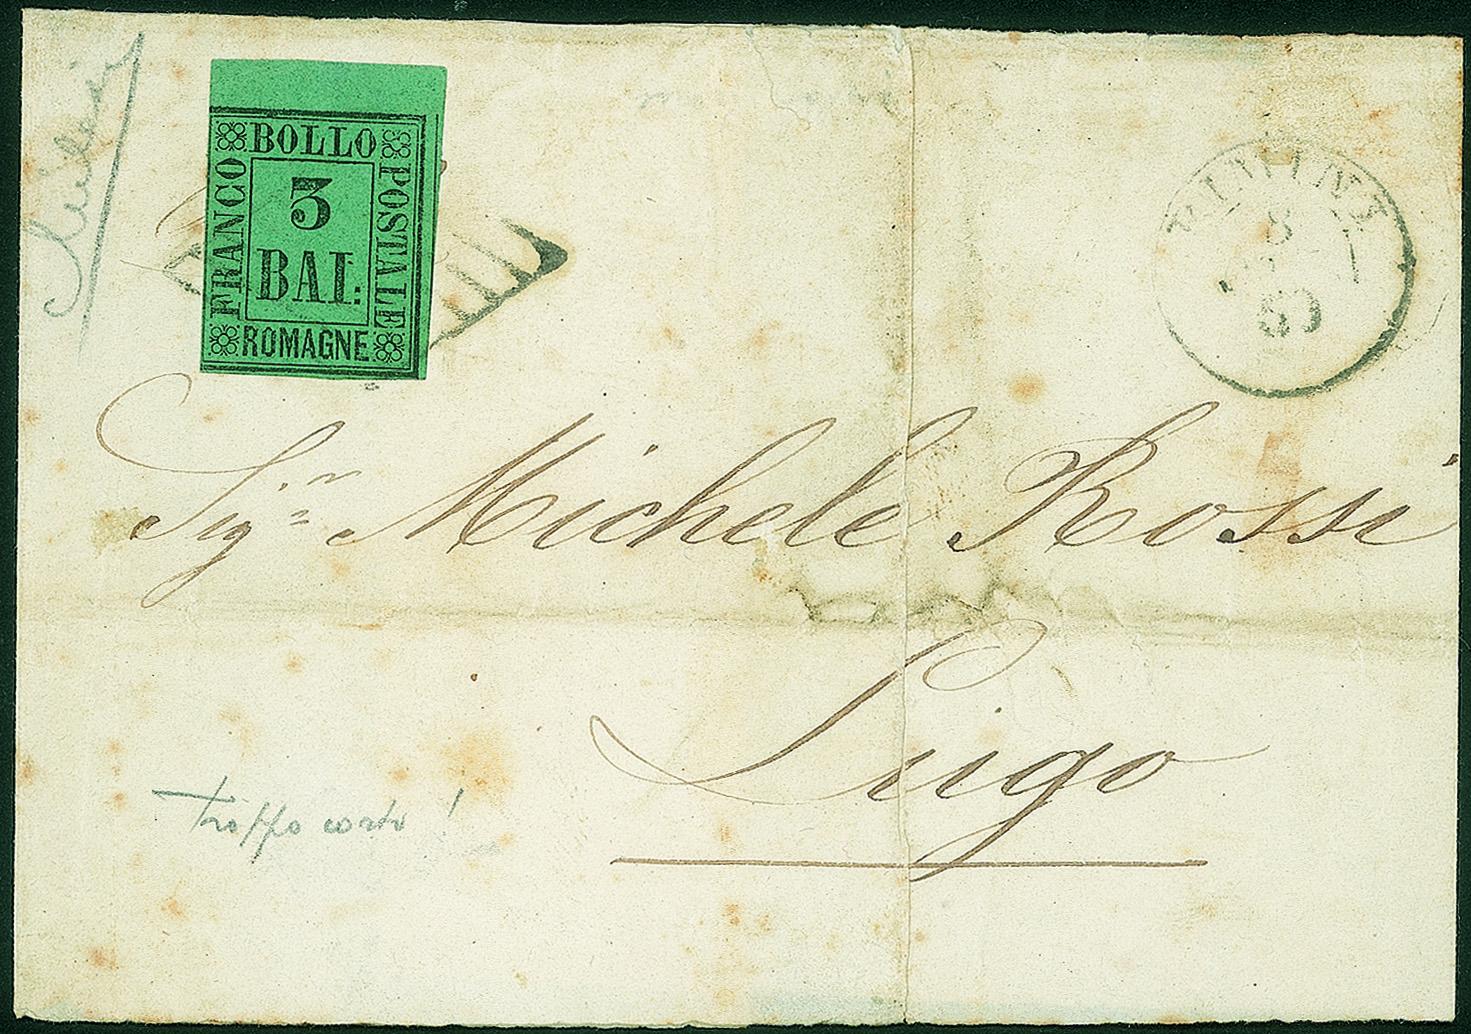 BOLLO
FRANCO
POSTALE
3
BAI:
ROMAGNE
RIMINI
8
Sig.n Michele Rossi
Lugo
troppo corto!